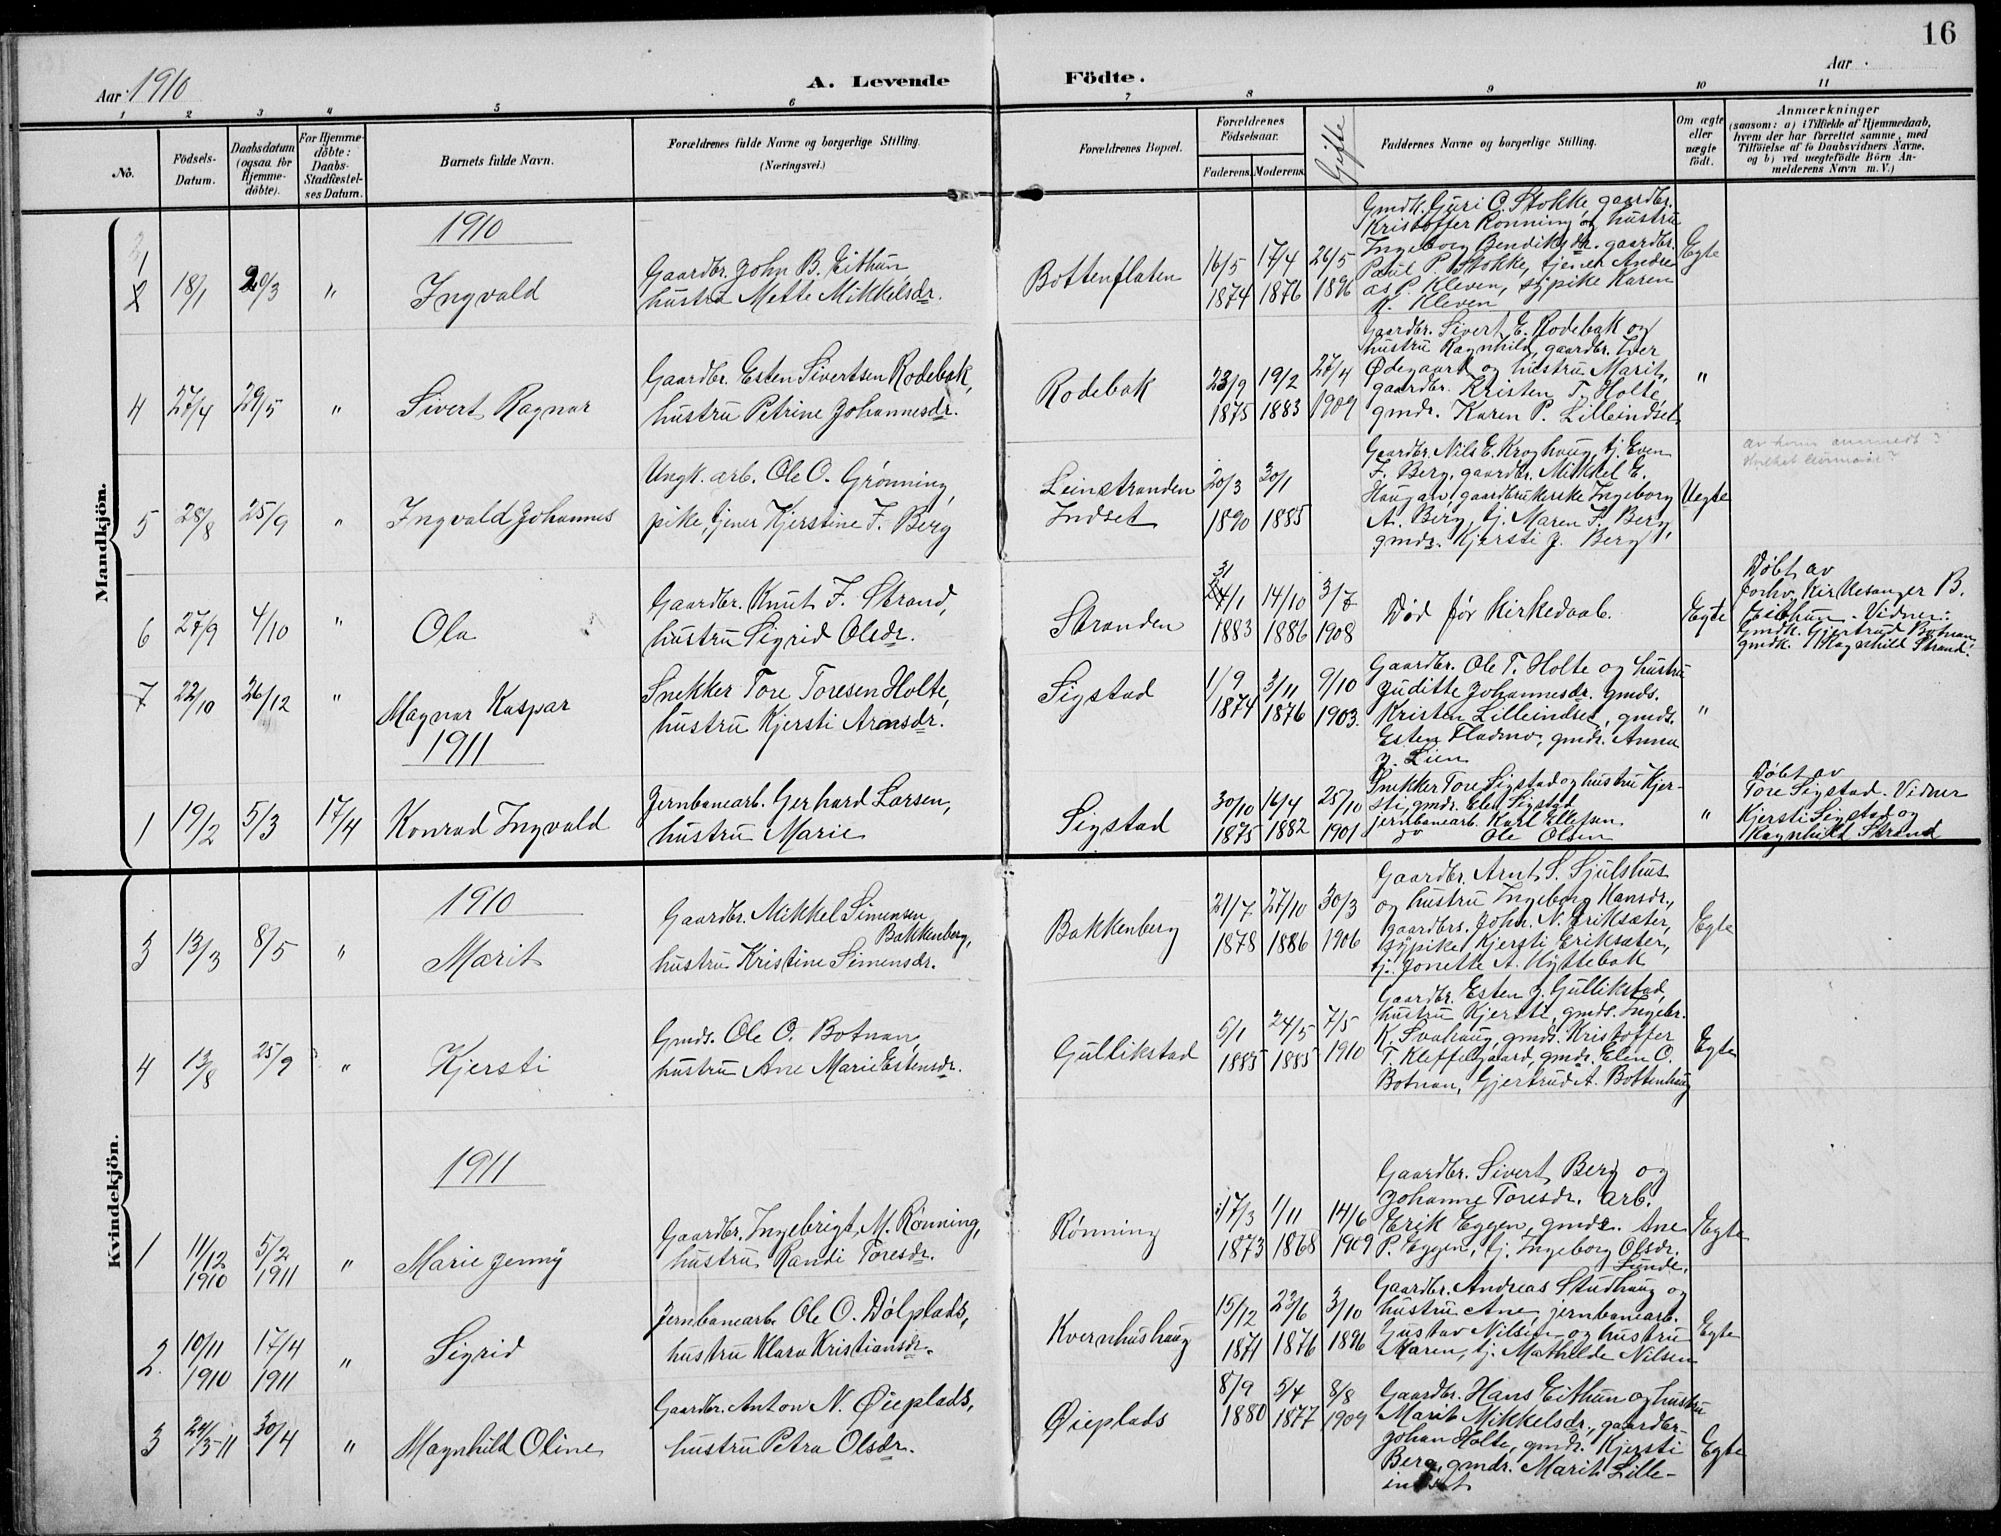 16
Aar 1910
A. Levende Födte.
Aar
1 2 3 4 5 6 7 8 9 10 11
No.
Födsels-
Datum.
Daabsdatum
(ogsaa for
Hjemme-
döbte).
For Hjemme-
döbte:
Daabs-
Stadfæstel-
ses Datum.
Barnets fulde Navn.
Forældrenes fulde Navne og borgerlige Stilling.
(Næringsvei.)
Forældrenes Bopæl.
Forældrenes
Födselsaar.
Faderens. Moderens.
Gifte
Faddernes Navne og borgerlige Stilling.
Om ægte
eller
uægte
født.
Anmærkninger
(saasom: a) i Tilfælde af Hjemmedaab,
hvem der har forrettet samme, med
Tilföielse af to Daabsvidners Navne,
og b) ved uægtefödte Börn An-
melderens Navn m. V.)
Mandkjön.
1910
18/1 20/3 " Ingvald
Gaardbr. John B. Eithun,
hustru Mette Mikkelsdr.
Bottenflaten
16/5 1874
17/4 1876
26/5 1896
Gmdk. Guri O. Stokke, gaardbr.
Kristoffer Rønning og hustru
Ingeborg Bendiksdr. gaardbr.
Paul P. Stokke, tjener Andre-
as P. Kleven, sypike Karen
K. Kleven
Egte
4 27/4 29/5 " Sivert Ragnar
Gaardbr. Esten Sivertsen Rodebak,
hustru Petrine Johannesdr.
Rodebak
23/9 1875
19/2 1883
27/4 1909
Gaardbr. Sivert E. Rodebak og
hustru Ragnhild, gaardbr. Iver
Ødegaard og hustru Marit,
gaardbr. Kristen T. Holte,
gmdr. Karen P. Lilleindset
"
5 28/8 25/9 " Ingvald Johannes
Ungk. arb. Ole O. Grønning,
pike, tjener Kjerstine F. Berg
Leinstranden
Indset
20/3 1890
30/1 1885
Gaardbr. Nils E. Kroghaug, tj. Even
F. Berg, gaardbr. Mikkel E.
Haugan, gaardbrukerske Ingeborg
A. Berg, tj. Maren F. Berg,
gmds. Kjersti J. Berg
Uegte
6 27/9 4/10 " Ola
Gaardbr. Knut F. Strand,
hustru Sigrid Olsdr.
Stranden
31/1 1883
14/10 1886
3/7 1908
Død før kirkedaab.
Egte
Døbt av
forhv. Kirkesanger B.
Eithun. Vidner:
gmdk. Gjertrud Botnan,
gmdk. Ragnhild Strand.
7 22/10 26/12 " Magnar Kaspar
Snekker Tore Toresen Holte,
hustru Kjersti Arnsdr.
Sigstad
1/9 1874
3/11 1876
9/10 1903.
Gaardbr. Ole T. Holte og hustru
Juditte Johannesdr. gmds.
Kristen Lilleindset, gmds.
Esten Fladmo, gmdr. Anna
J. Lien
"
1911
1 19/2 5/3 17/4 Konrad Ingvald
Jernbanearb. Gerhard Larsen,
hustru Marie
Sigstad
30/10 1875
16/4 1882
25/10 1901
Snekker Tore Sigstad og hustru Kjer-
sti, gmdr. Elen Sigstad
jernbanearb. Karl Ellefsen
do Ole Olsen
"
Døbt av
Tore Sigstad. Vidner
Kjersti Sigstad og
Ragnhild Strand
Kvindekjön.
1910
3 13/3 8/5 " Marit
Gaardbr. Mikkel Simensen
Bakkenberg,
hustru Kristine Simensdr.
Bakkenberg
21/7 1878
27/10 1886
30/3 1906
Gaardbr. Arnt S. Sjulshus
og hustru Ingeborg Hansdr.,
gaardbrs. John N. Eriksæter,
sypike Kjersti Eriksæter,
tj. Jonette A. Hyttebak
Egte
4 13/8 25/9 " Kjersti
Gmds. Ole O. Botnan,
hustru Ane Marie Estensdr.
Gullikstad
5/1 1885
24/5 1885
7/5 1910
Gaardbr. Esten J. Gullikstad,
hustru Kjersti, gmds. Ingebr.
K. Svahaug, gmds. Kristoffer
T. Kleffelgaard, gmdr. Elen O.
Botnan, Gjertrud A. Bottenhaug
Egte
1911
1 11/12 1910 5/2 1911 " Marie Jenny
Gaardbr. Ingebrigt M. Rønning,
hustru Randi Toresdr.
Rønning
17/3 1873
1/11 1868
14/6 1909
Gaardbr. Sivert Berg og
Johanne Toresdr. arb.
Erik Eggen, gmdr. Ane
P. Eggen, tj. Ingeborg Olsdr.
Sunde.
Egte
2. 10/11 1910 17/4 1911 " Sigrid
Jernbanearb. Ole O. Dølplads,
hustru Klara Kristiansdr.
Kvernhushaug
15/12 1871
23/6 1876
3/10 1896
Gaardbr. Andreas Studhaug og
hustru Ane, jernbanearb.
Gustav Nilsen og hustru
Maren, tj. Mathilde Nilsen
Egte
3 24/3-11 30/4 " Magnhild Oline
Gaardbr. Anton N. Øieplads,
hustru Petra Olsdr.
Øieplads
8/9 1880
5/4 1877
8/8 1909
Gaardbr. Hans Eithun og hustru
Marit Mikkelsdr, gaardbr.
Johan Holte, gmdr. Kjersti
Berg, gmdr. Marit Lille-
indset
Egte